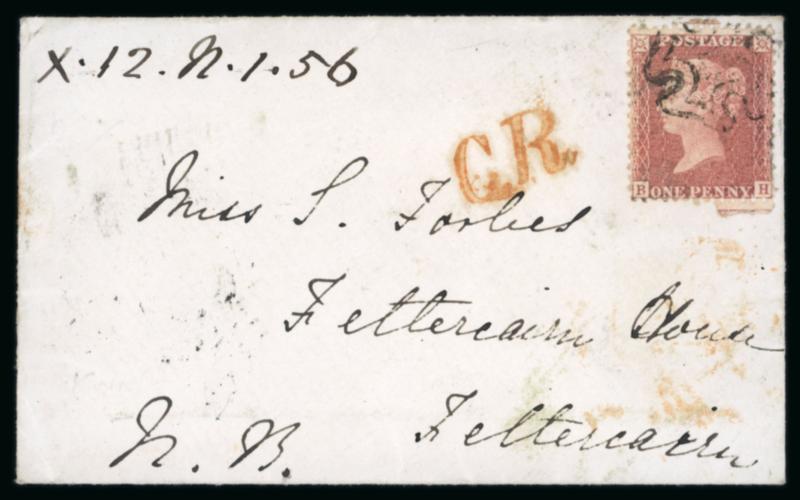 X.12.N.1.56
G.R.
POSTAGE
B ONE PENNY H
Miss S. Forbes
Fettercairn House
Fettercairn
N. B.